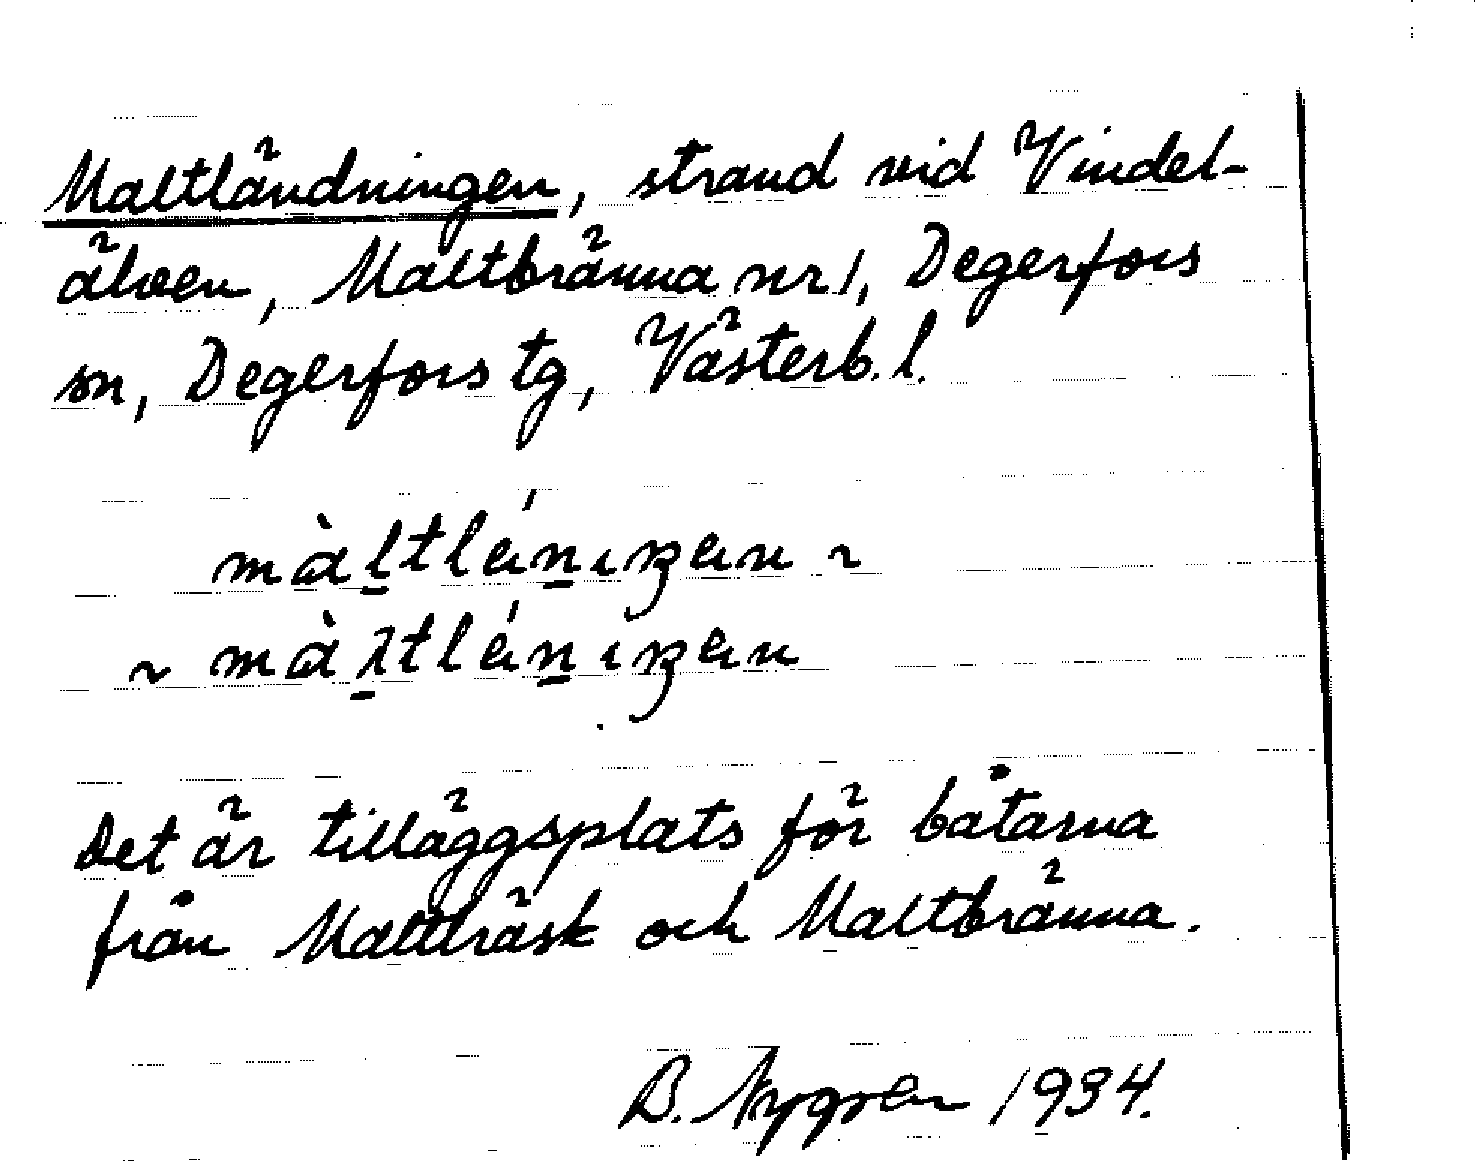 Maltländningen, strand vid Vindel-
älven, Maltbränna nr 1, Degerfors
sn, Degerfors tg, Västerb. l.
~
~
Det är tilläggsplats för båtarna
från Maltträsk och Maltbränna.
B. Nygren 1934.